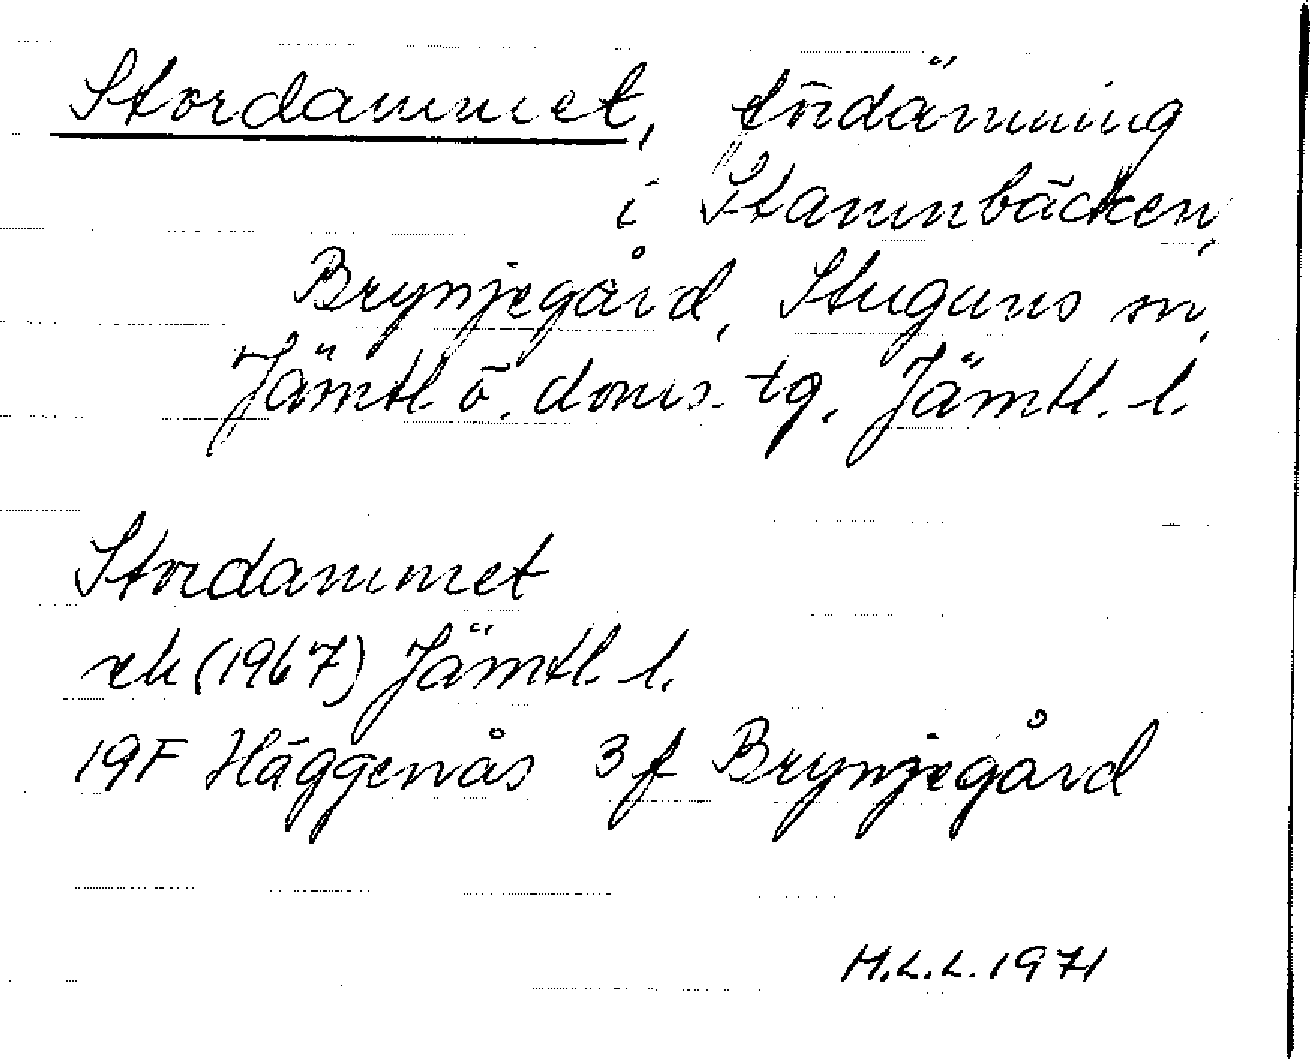 Stordammet, fördämning
i Stamnbäcken,
Brynjegård, Stuguns sn,
Jämtl. ö. doms. tg. Jämtl. l.
Stordammet
rek (1967) Jämtl. l.
19F Häggenås 3 f Brynjegård
H.L.L. 1971